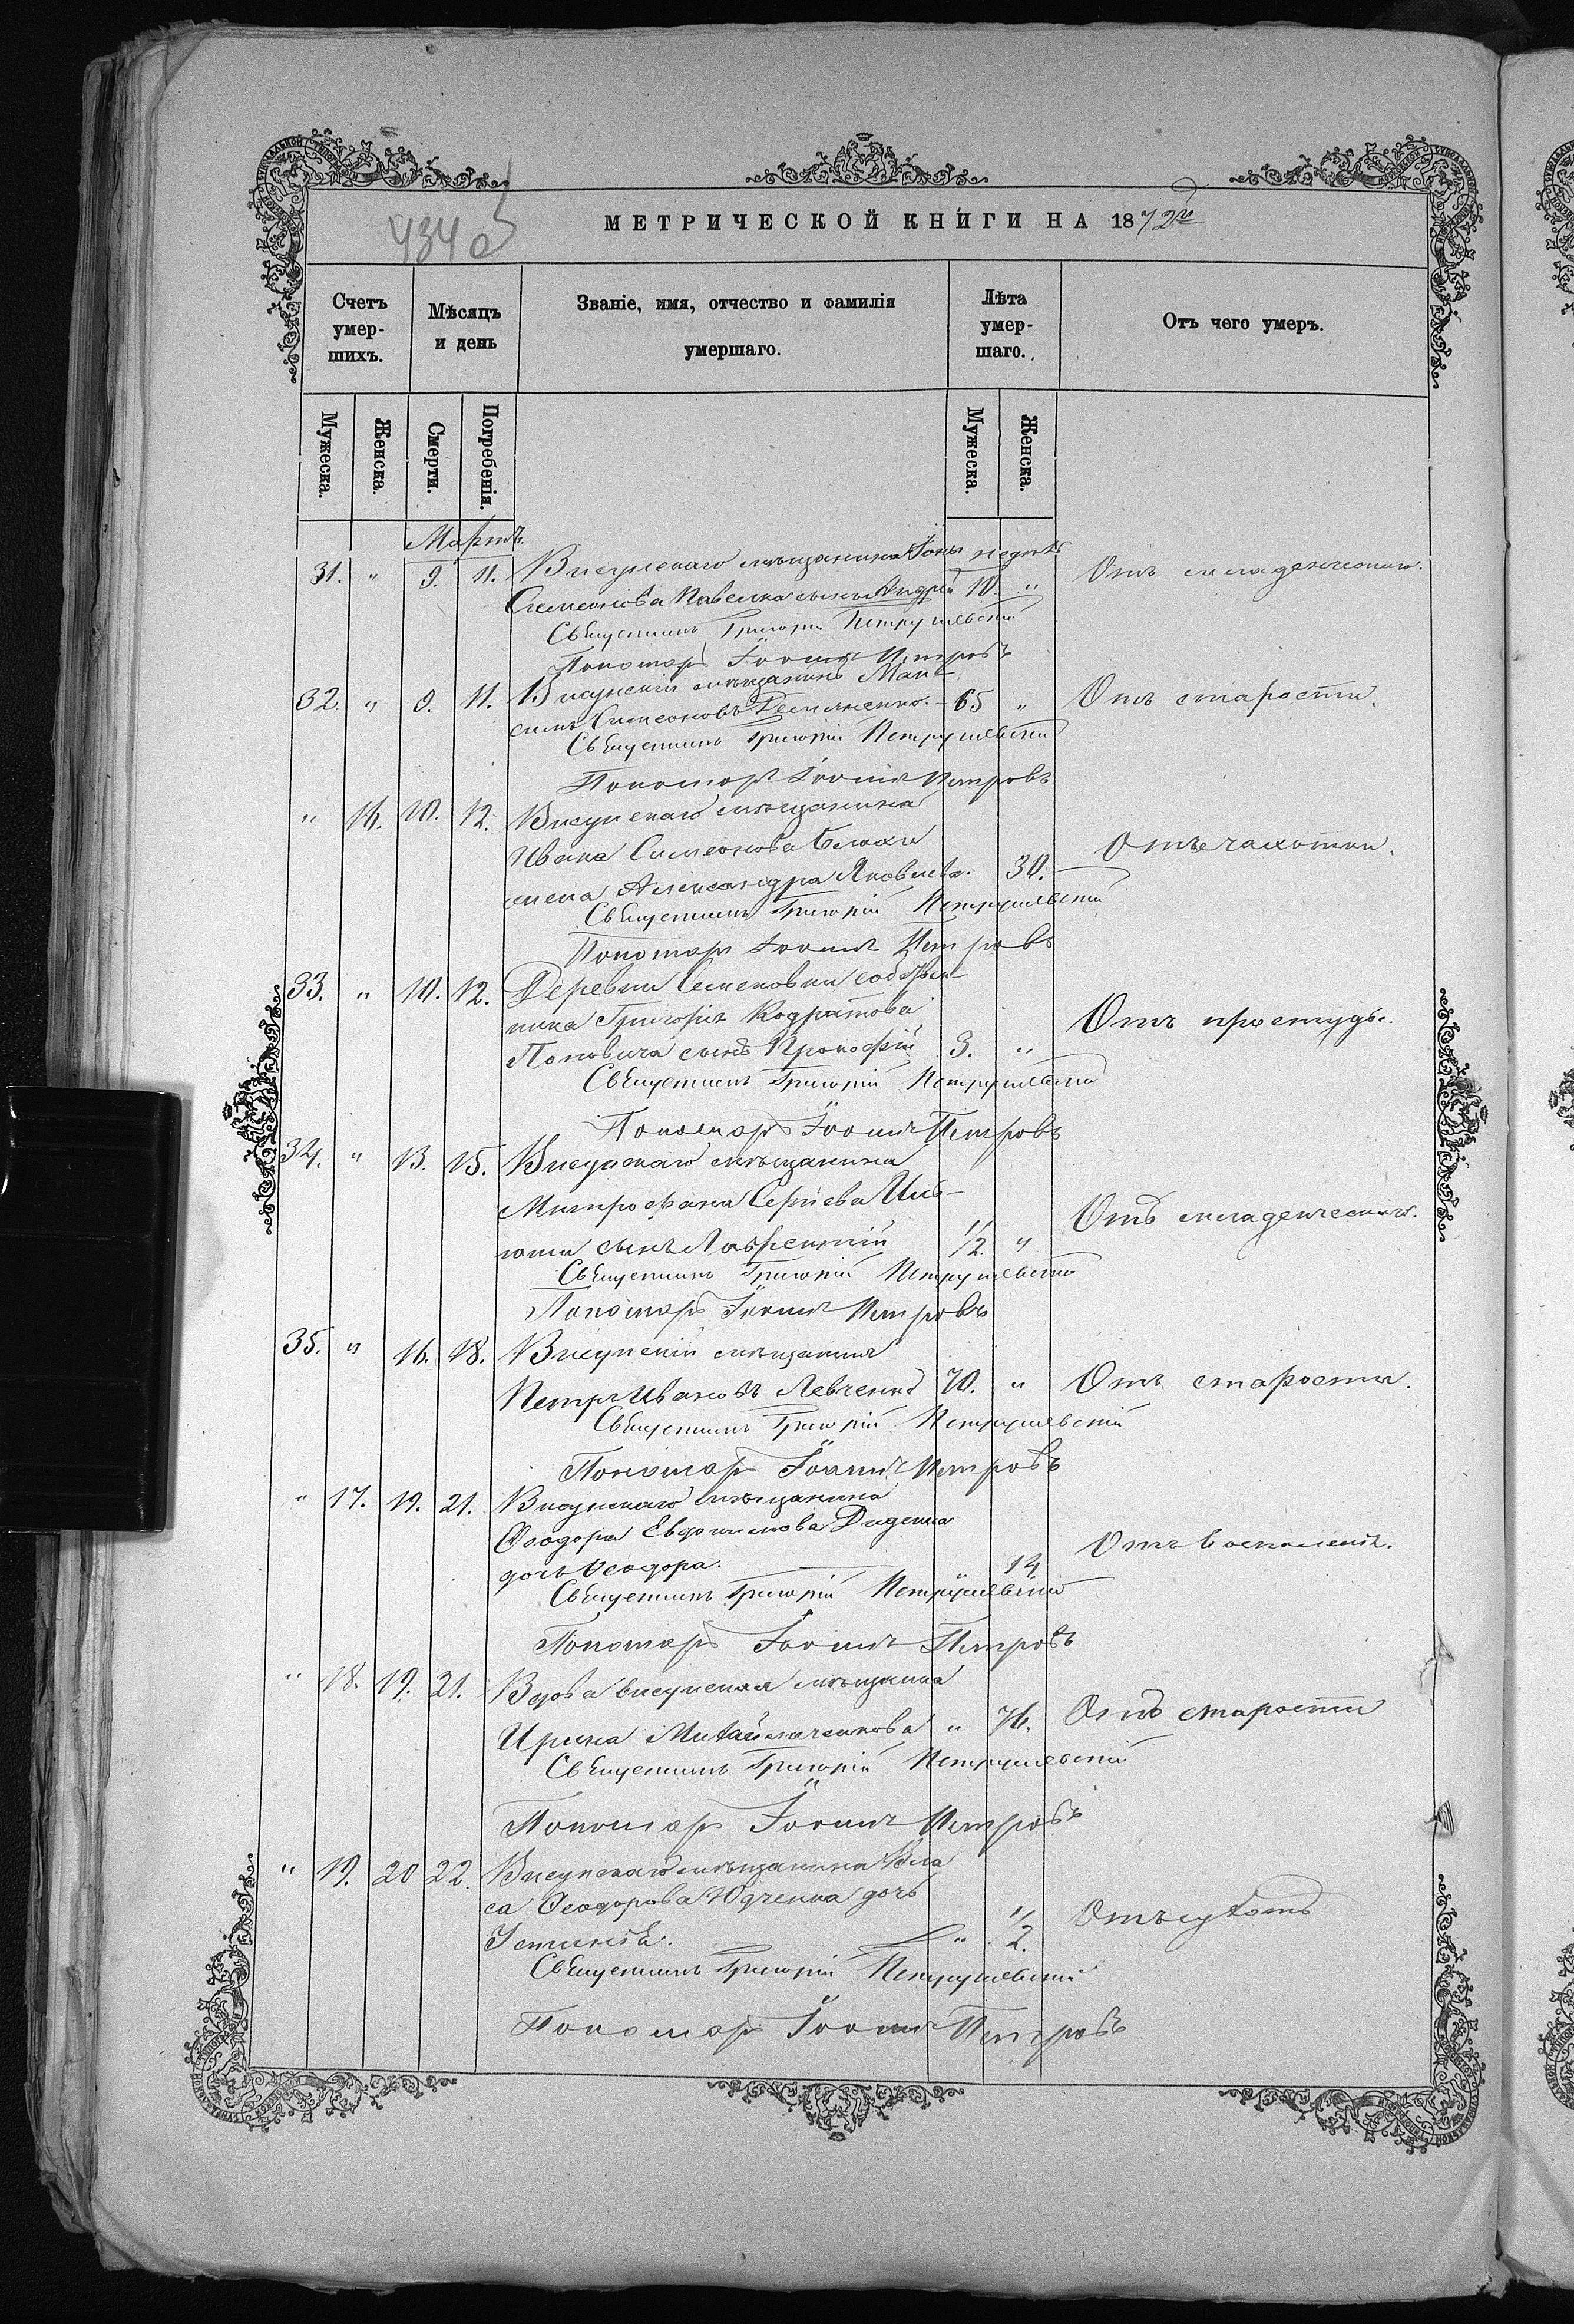 434 об
МЕТРИЧЕСКОЙ КНИГИ НА 1872й
Счетъ умер-шихъ.
Мѣсяцъ и день
Званіе, имя, отчество и фамилія умершаго.
Лѣта умер-шаго.
Отъ чего умеръ.
Мужеска.
Женска.
Смерти.
Погребенія.
Мужеска.
Женска.
Мартъ.
31. " 9. 11. Висунскаго мѣщанина Іоны недѣль
Симеонова Павелка сынъ Андрей 10. " Отъ младенческой.
Священникъ Григорій Петрушевскій
Пономарь Іоаннъ Петровъ
32. " 9. 11. Висунскій мѣщанинъ Мак-
симъ Симеоновъ Демяненко. 65 " Отъ старости.
Священникъ Григорій Петрушевскій
Пономарь Іоаннъ Петровъ
" 16. 10. 12. Висунскаго мѣщанина
Ивана Симеонова
жена Александра Яковлева. 30. Отъ чахотки.
Священникъ Григорій Петрушевскій
Пономарь Іоаннъ Петровъ
33. " 10. 12. Деревни Семеновки собствен-
ника Григорія Кодратова
Поповича сынъ Прокофій 3. " Отъ простуды.
Священникъ Григорій Петрушевскій
Пономарь Іоаннъ Петровъ
34. " 13. 15. Висунскаго мѣщанина
Митрофана Сергіева
сынъ Лаврентій 1/2. " Отъ младенческой.
Священникъ Григорій Петрушевскій
Пономарь Іоаннъ Петровъ
35. " 16. 18. Висунскій мѣщанинъ
Петръ Ивановъ Левченко 70. " Отъ старости.
Священникъ Григорій Петрушевскій
Пономарь Іоаннъ Петровъ
" 17. 19. 21. Висунскаго мѣщанина
Ѳеодора Евдокимова Диденка
дочь Ѳеодора. 14 Отъ воспаленія.
Священникъ Григорій Петрушевскій
Пономарь Іоаннъ Петровъ
" 18. 19. 21. Вдова висунская мѣщанка
Ирина " 76. Отъ старости
Священникъ Григорій Петрушевскій
Пономарь Іоаннъ Петровъ
" 19. 20 22. Висунскаго мѣщанина Вла
са Ѳеодорова Юдченка дочь
Устинія. " 1/2. Отъ сухотъ
Священникъ Григорій Петрушевскій
Пономарь Іоаннъ Петровъ